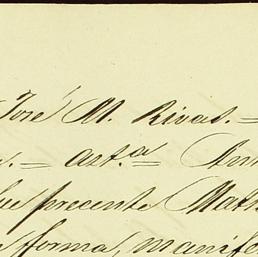 José M. Rivas. =
. = Ast.a =
presente
forma, manife